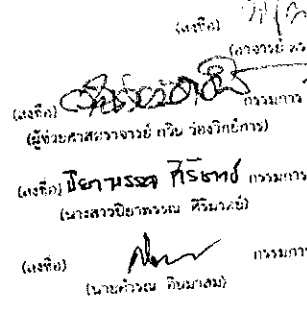 (ลงชื่อ)
(อาจารย์ ดร
(ลงชื่อ) กรรมการ
(ผู้ช่วยศาสตราจารย์ กวิน ว่องวิกย์การ)
(ลงชื่อ) ปิยาพรรณ ศิริมาตย์ กรรมการ
(นางสาวปิยาพรรณ ศิริมาตย์)
(ลงชื่อ) กรรมการ
(นายคำรณ อินมาสม)